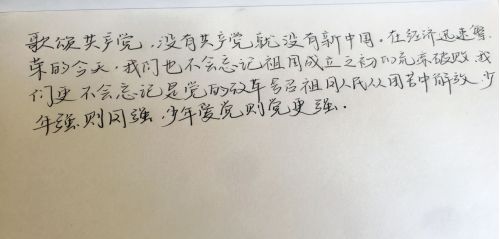 歌颂共产党，没有共产党就没有新中国，在经济迅速繁
荣的今天，我们也不会忘记祖国成立之初的荒凉破败，我
们更不会忘记是党的改革号召祖国人民从困苦中解放，少
年强则国强，少年爱党则党更强．